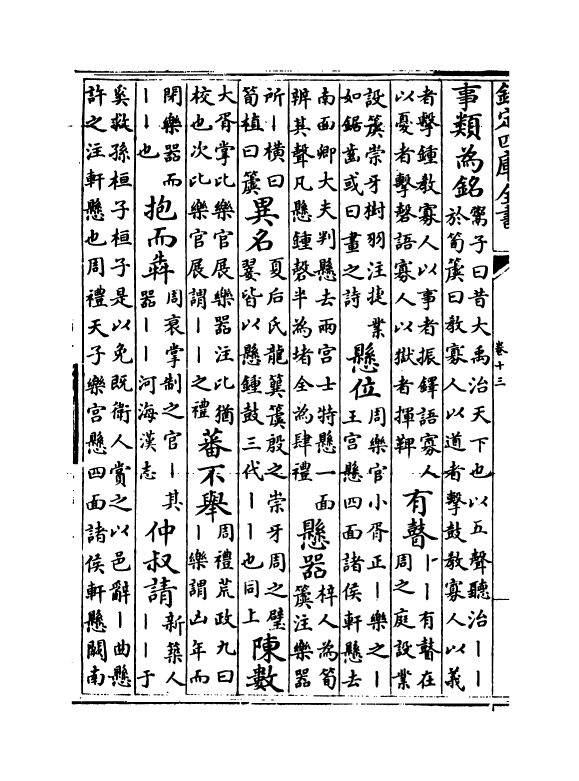 欽定四庫全書
卷十三
事類為銘
鬻子曰昔大禹治天下也以五聲聽治丨丨
於筍簴曰教寡人以道者擊鼓教寡人以義
者擊鍾教寡人以事者振鐸語寡人
以憂者擊磬語寡人以獄者揮鞀
有瞽
丨丨有瞽在
周之庭設業
設簴崇牙樹羽注捷業
如鋸齒或曰畫之詩
懸位
周樂官小胥正丨樂之丨
王宮懸四面諸侯軒懸去
南面卿大夫判懸去兩宮士特懸一面
辨其聲凡懸鍾磬半為堵全為肆禮
懸器
梓人為筍
簴注樂器
所丨橫曰
筍植曰簴
異名
夏后氏龍簨簴殷之崇牙周之璧
翣皆以懸鍾鼓三代丨丨也同上
陳數
大胥掌比樂官展樂器注比猶
校也次比樂官展謂丨丨之禮
蕃不舉
周禮荒政九曰
丨樂謂凶年而
閉樂器而
丨丨也
抱而犇
周衰掌制之官丨其
器丨丨河海漢志
仲叔請
新築人
丨丨丨于
奚救孫桓子桓子是以免既衛人賞之以邑辭丨曲懸
許之注軒懸也周禮天子樂宮懸四面諸侯軒懸闕南